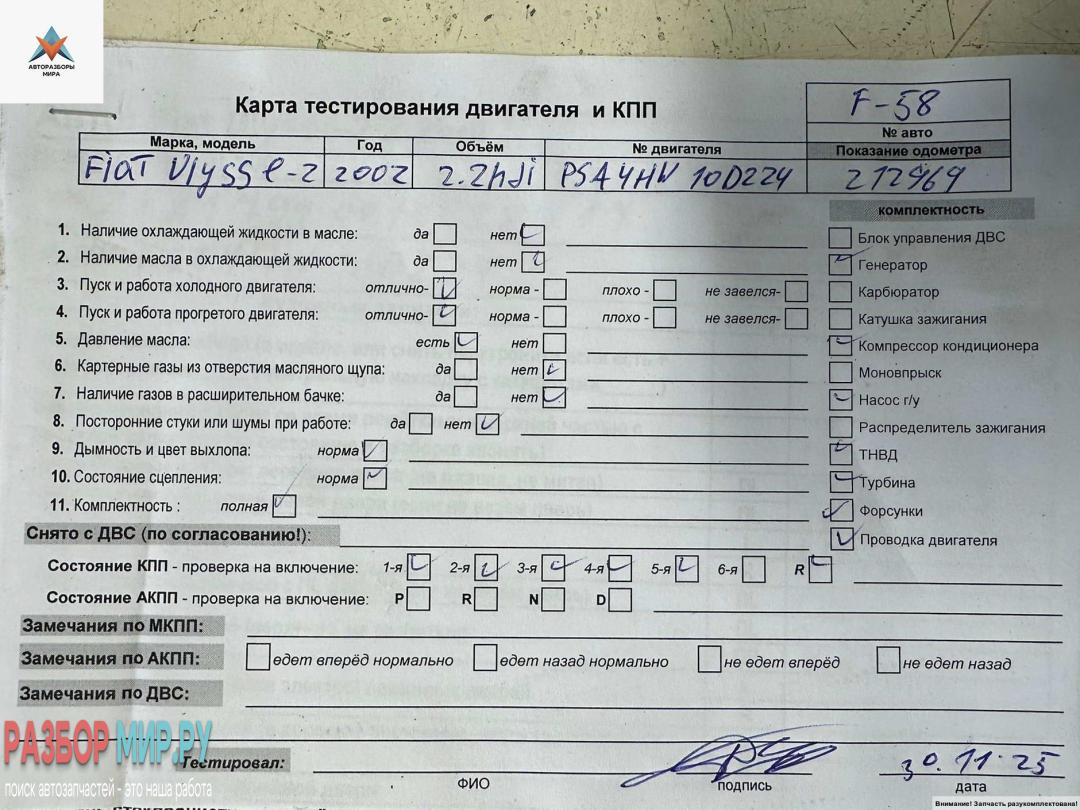 АВТОРАЗБОРЫ
МИРА
Карта тестирования двигателя и КПП
F-58
№ авто
Марка, модель Год Объём № двигателя Показание одометра
FiaT Ulysse-2 2002 2.2hdi PSA4HW 10D224 212969
комплектность
1. Наличие охлаждающей жидкости в масле: да нет
Блок управления ДВС
2. Наличие масла в охлаждающей жидкости: да нет
Генератор
3. Пуск и работа холодного двигателя: отлично- норма - плохо - не завелся-
Карбюратор
4. Пуск и работа прогретого двигателя: отлично- норма - плохо - не завелся-
Катушка зажигания
5. Давление масла: есть нет
Компрессор кондиционера
6. Картерные газы из отверстия масляного щупа: да нет
Моновпрыск
7. Наличие газов в расширительном бачке: да нет
Насос г/у
8. Посторонние стуки или шумы при работе: да нет
Распределитель зажигания
9. Дымность и цвет выхлопа: норма
ТНВД
10. Состояние сцепления: норма
Турбина
11. Комплектность : полная
Форсунки
Снято с ДВС (по согласованию!):
Проводка двигателя
Состояние КПП - проверка на включение: 1-я 2-я 3-я 4-я 5-я 6-я R
Состояние АКПП - проверка на включение: P R N D
Замечания по МКПП:
Замечания по АКПП: едет вперёд нормально едет назад нормально не едет вперёд не едет назад
Замечания по ДВС:
РАЗБОР МИР.РУ
Тестировал:
30.11.25
поиск автозапчастей - это наша работа
ФИО подпись дата
Внимание! Запчасть разукомплектована!